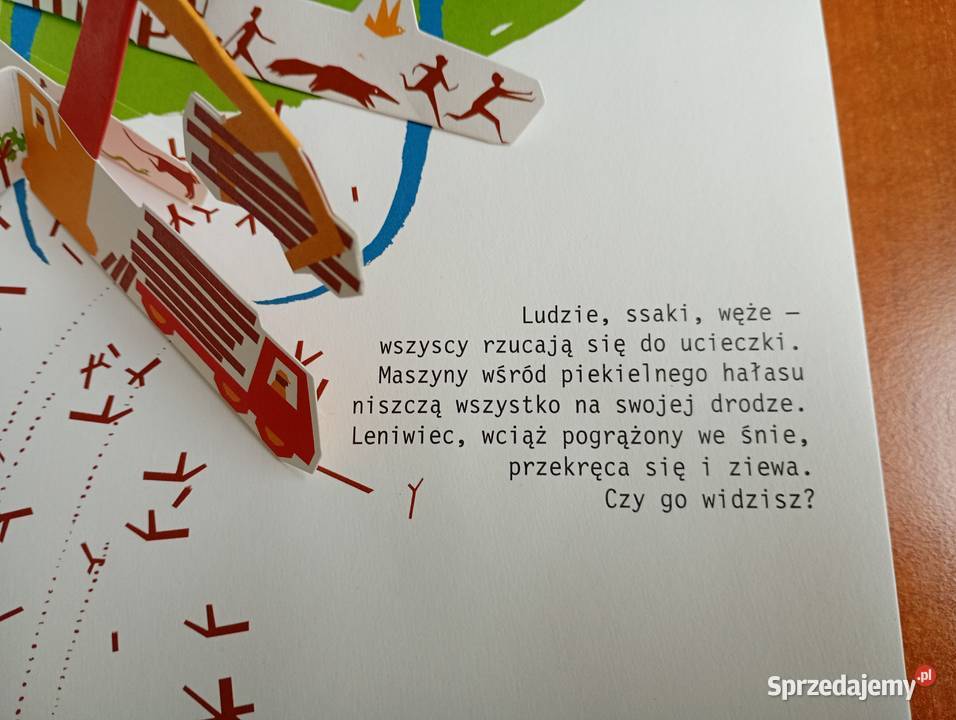 Ludzie, ssaki, węże –
wszyscy rzucają się do ucieczki.
Maszyny wśród piekielnego hałasu
niszczą wszystko na swojej drodze.
Leniwiec, wciąż pogrążony we śnie,
przekręca się i ziewa.
Czy go widzisz?
Sprzedajemy.pl